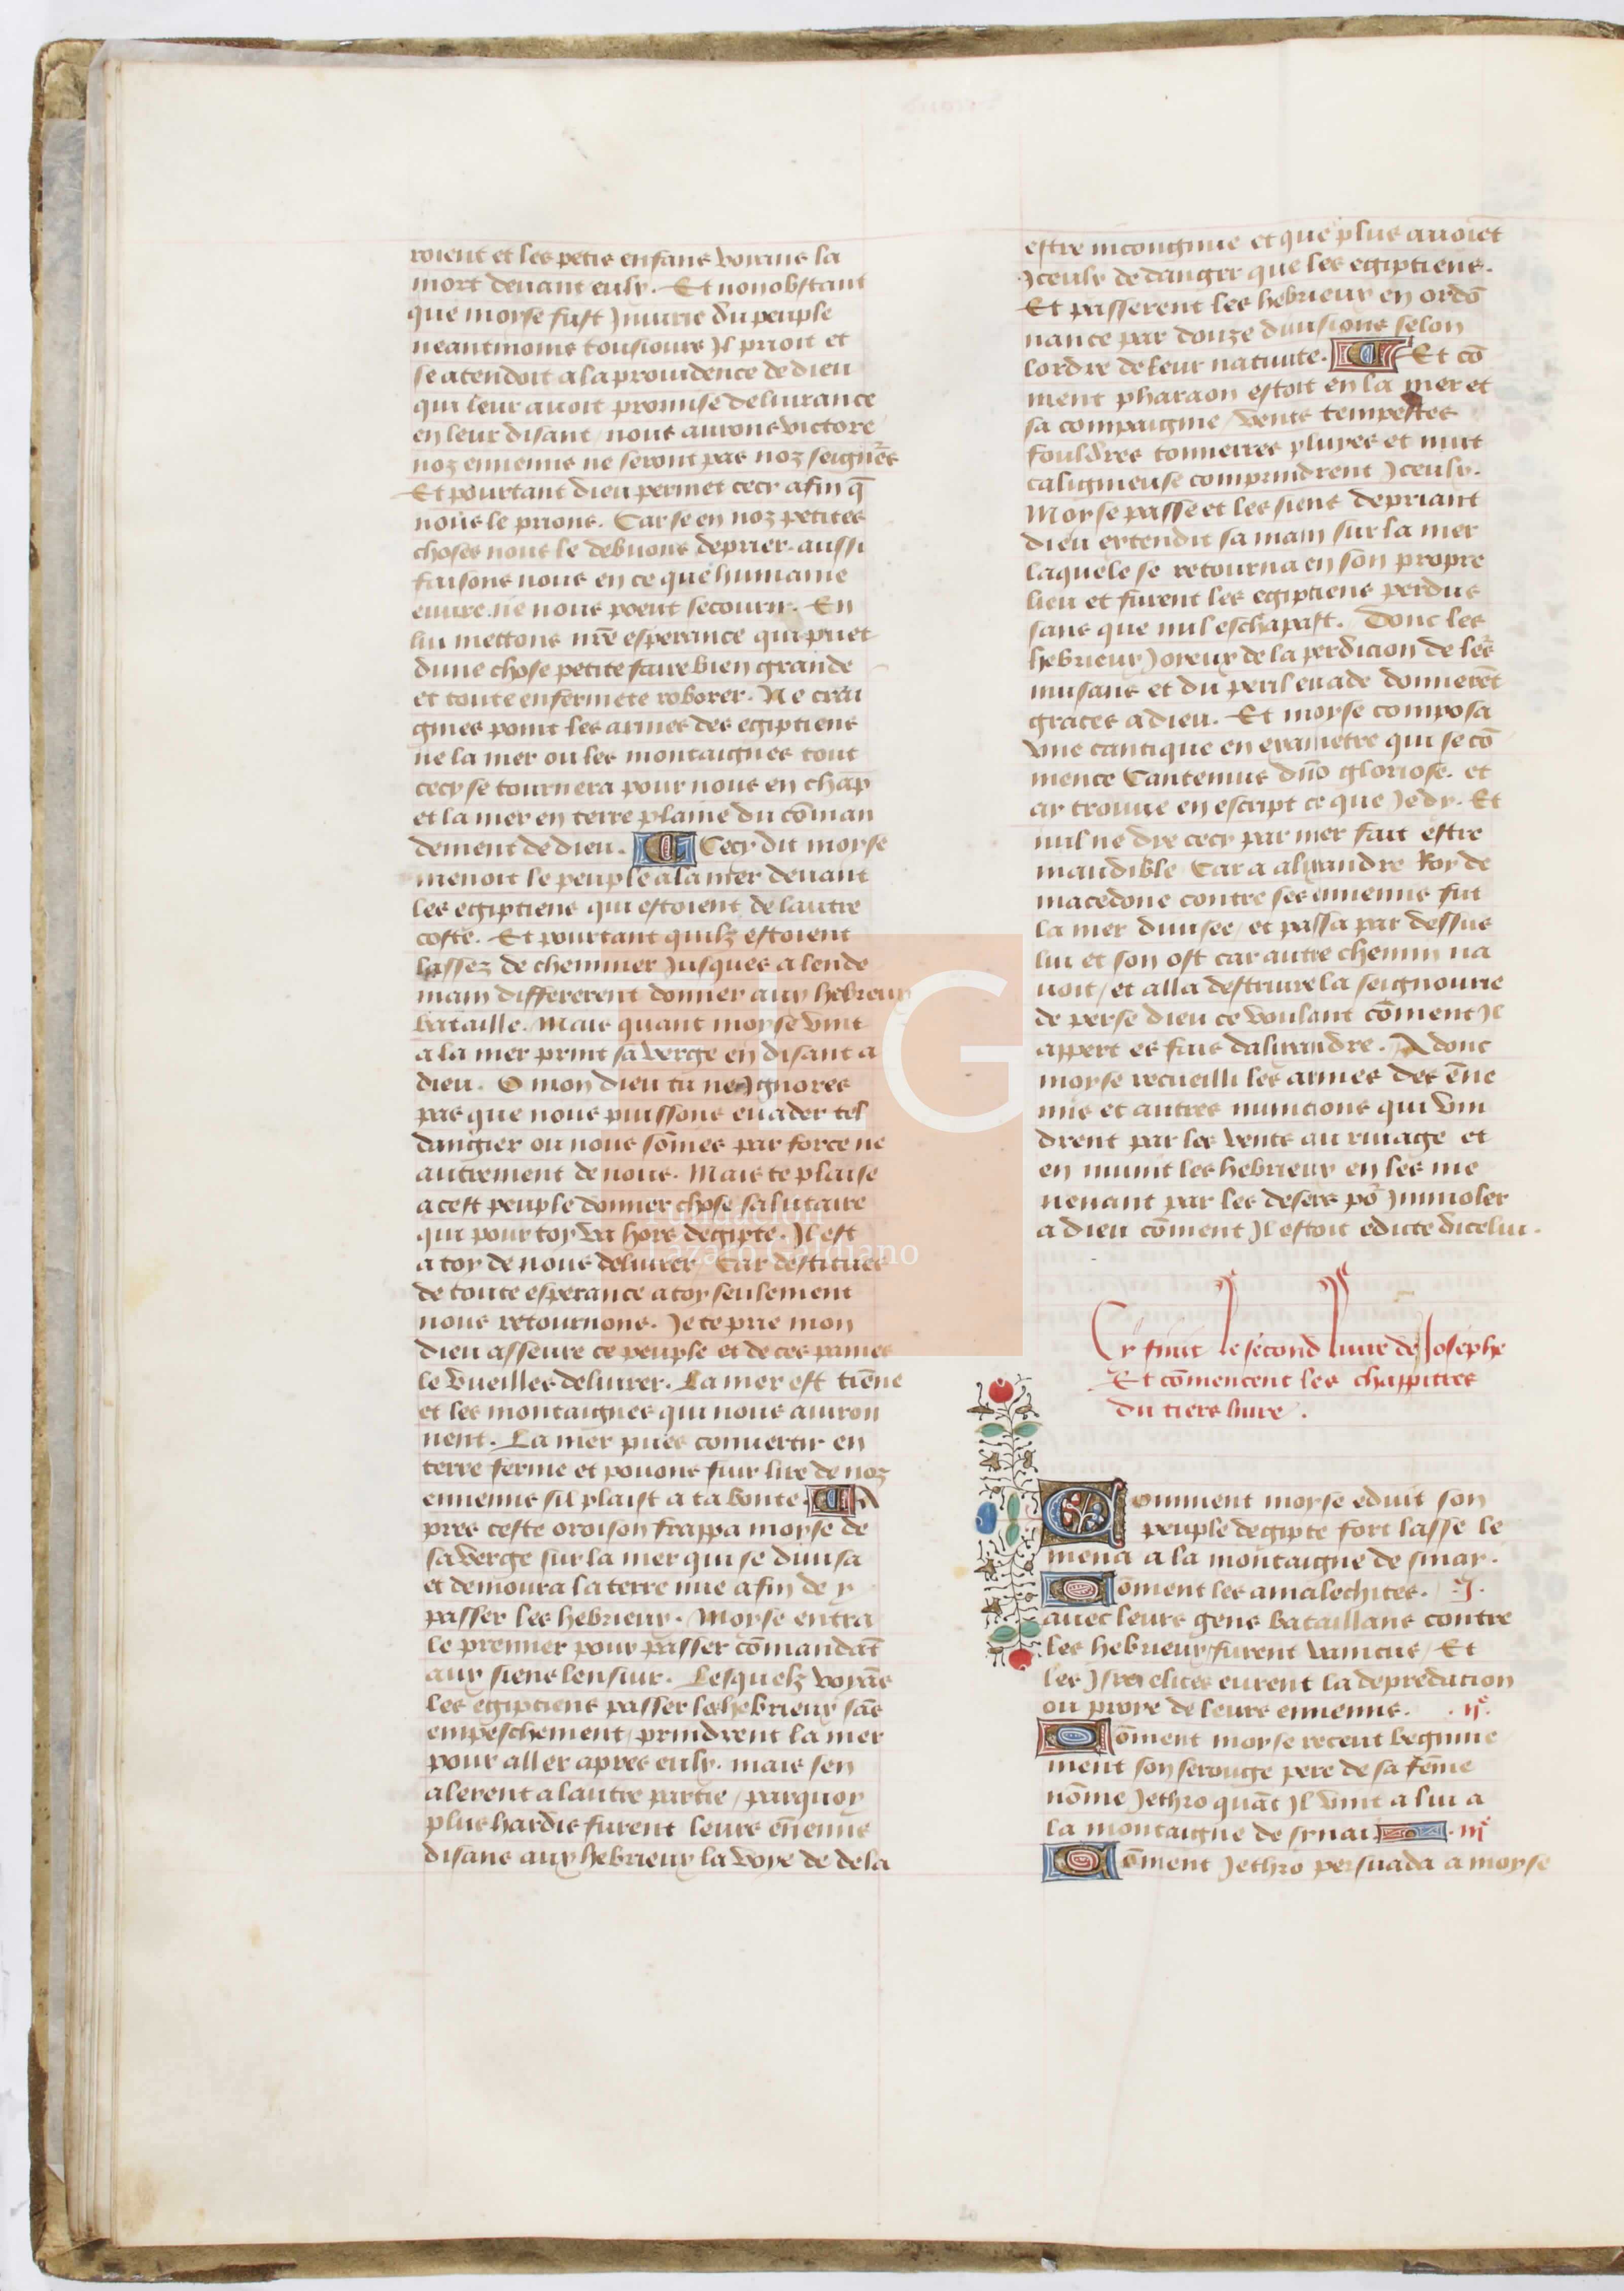 roient et les petis enfans voians la
mort deuant eulx. Et nonobstant
que moyse fust Jniurie du peuple
neantmoins tousiours Jl prioit et
se atendoit a la prouidence de dieu
qui leur auoit promise deliurance
en leur disant / nous aurons victore
noz ennemis ne seront pas noz seignēs
Et pourtant dieu permet cecy afin q̄
nous le prions. Car se en noz petites
choses nous le debuons deprier. aussi
faisons nous en ce que humaine
euure ne nous poent secourir. En
lui mettons nr̄e esperance qui puet
dune chose petite faire bien grande
et toute enfermete roborer. Ne crai
gnies point les armes des egiptiens
ne la mer ou les montaignes tout
cecy se tournera pour nous en chap
et la mer en terre plaine du cōman
dement de dieu. Cecy dit moyse
menoit le peuple a la mer deuant
les egiptiens qui estoient de lautre
coste. Et pourtant quilz estoient
lassez de cheminer Jusques a lende
main differerent donner aux hebrieux
bataille. Mais quant moyse vint
a la mer print sa verge en disant a
dieu. O mon dieu tu ne Jgnores
pas que nous puissons euader tel
dangier ou nous sōmes par force ne
autrement de nous. Mais te plaise
a cest peuple donner chose salutaire
qui pour toy va hors degipte. Jl est
a toy de nous deliurer Car destitues
de toute esperance a toy seulement
nous retournons. Je te prie mon
dieu asseure ce peuple et de ces paines
le vueilles deliurer. La mer est tiēne
et les montaignes qui nous auiron
nent. La mer pues conuertir en
terre ferme et pouons fuir lire de noz
ennemis sil plaist a ta bonte. A
pres ceste oroison frappa moyse de
sa verge sur la mer qui se diuisa
et demoura la terre nue afin de y
passer les hebrieux. Moyse entra
le premier pour passer cōmandāt
aux siens lensiuir. Lesquelz voyās
les egiptiens passer les hebrieux sās
empeschement / prindrent la mer
pour aller apres eulx. mais sen
alerent a lautre partie / parquoy
plus hardis furent leurs en̄emis
disans aux hebrieux la voye de dela
estre incongnue et que plus auoiēt
Jceulx de danger que les egiptiens.
Et passerent les hebrieux en ordō
nance par douze diuisions selon
lordre de leur natiuite. Et cō
ment pharaon estoit en la mer et
sa compaignie / vents tempestes
fouldres tonnerres pluyes et nuit
caligineuse comprindrent Jceulx.
Moyse passe et les siens depriant
dieu extendit sa main sur la mer
laquele se retourna en son propre
lieu et furent les egiptiens perdus
sans que nul eschapast. Donc les
hebrieux Joyeux de la perdicion de les
nuisans et du peril euade donnerēt
graces a dieu. Et moyse composa
vne cantique en exametre qui se cō
mence Cantemus dn̄o gloriose. et
ay trouue en escript ce que Je dy. Et
nul ne die cecy par mer fait estre
inaudible Car a alixandre Roy de
macedone contre ses ennemis fut
la mer diuisee / et passa par dessus
lui et son ost car autre chemin na
uoit / et alla destruire la seignourie
de perse dieu ce voulant cōment Jl
appert es fais dalixandre. Adonc
moyse recueilli les armes des ēne
mis et autres municions qui vin
drent par les vents au riuage et
en munit les hebrieux en les me
nenant par les desers po᷑ Jmmoler
a dieu cōment Jl estoit edicte dicelui.
Cy finit le second liure de Josephe
Et cōmencent les chappitres
du tiers liure.
Comment moyse eduit son
peuple degipte fort lasse le
mena a la montaigne de sinay.
Cōment les amalechites. J.
auec leurs gens bataillans contre
les hebrieux furent vaincus / Et
les Jsraelites eurent la depredacion
ou proye de leurs ennemis. .ije.
Cōment moyse receut begnine
ment son serouge pere de sa fēme
nōme Jethro quāt Jl vint a lui a
la montaigne de synai .iije
Cōment Jethro persuada a moyse
Fundación
Lázaro Galdiano
LG